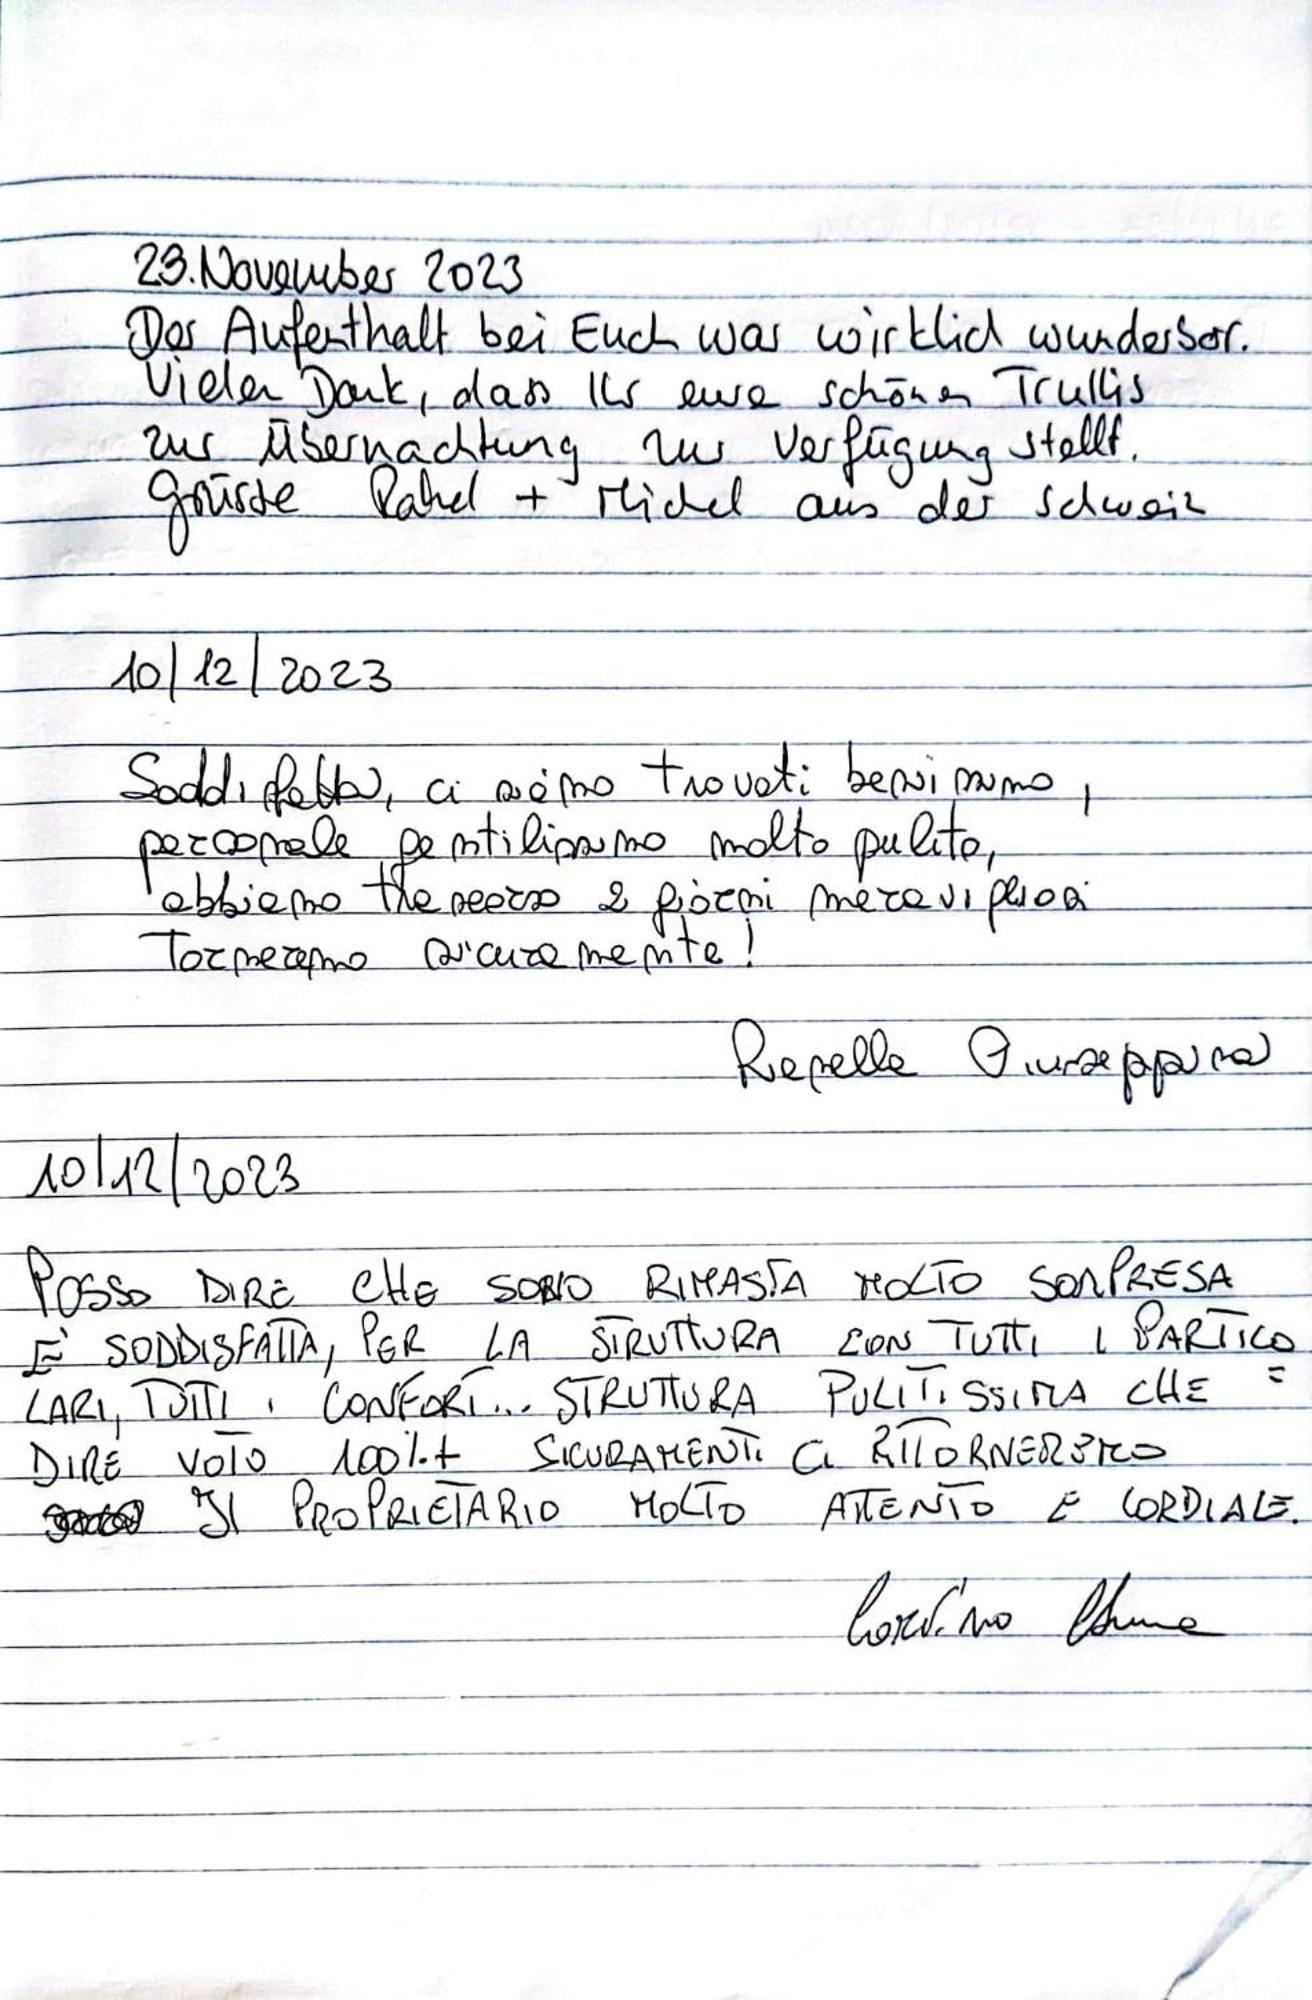 23. November 2023
Der Aufenthalt bei Euch war wirklich wunderbar.
Vielen Dank, dass Ihr eure schönen Trullis
zur Übernachtung zur Verfügung stellt.
Grüsse Rahel + Michel aus der Schweiz
10/12/2023
Soddisfatta, ci siamo trovati benissimo,
personale gentilissimo molto pulito,
abbiamo the scorso 2 giorni meravigliosi
Torneremo sicuramente!
Repelle Giuseppina
10/12/2023
POSSO DIRE CHE SONO RIMASTA MOLTO SORPRESA
E' SODDISFATTA, PER LA STRUTTURA CON TUTTI I PARTICO
LARI, TUTTI i CONFORT... STRUTTURA PULITISSIMA CHE =
DIRE VOTO 100%+ SICURAMENTI CI RITORNEREMO
Il PROPRIETARIO MOLTO ATTENTO E CORDIALE.